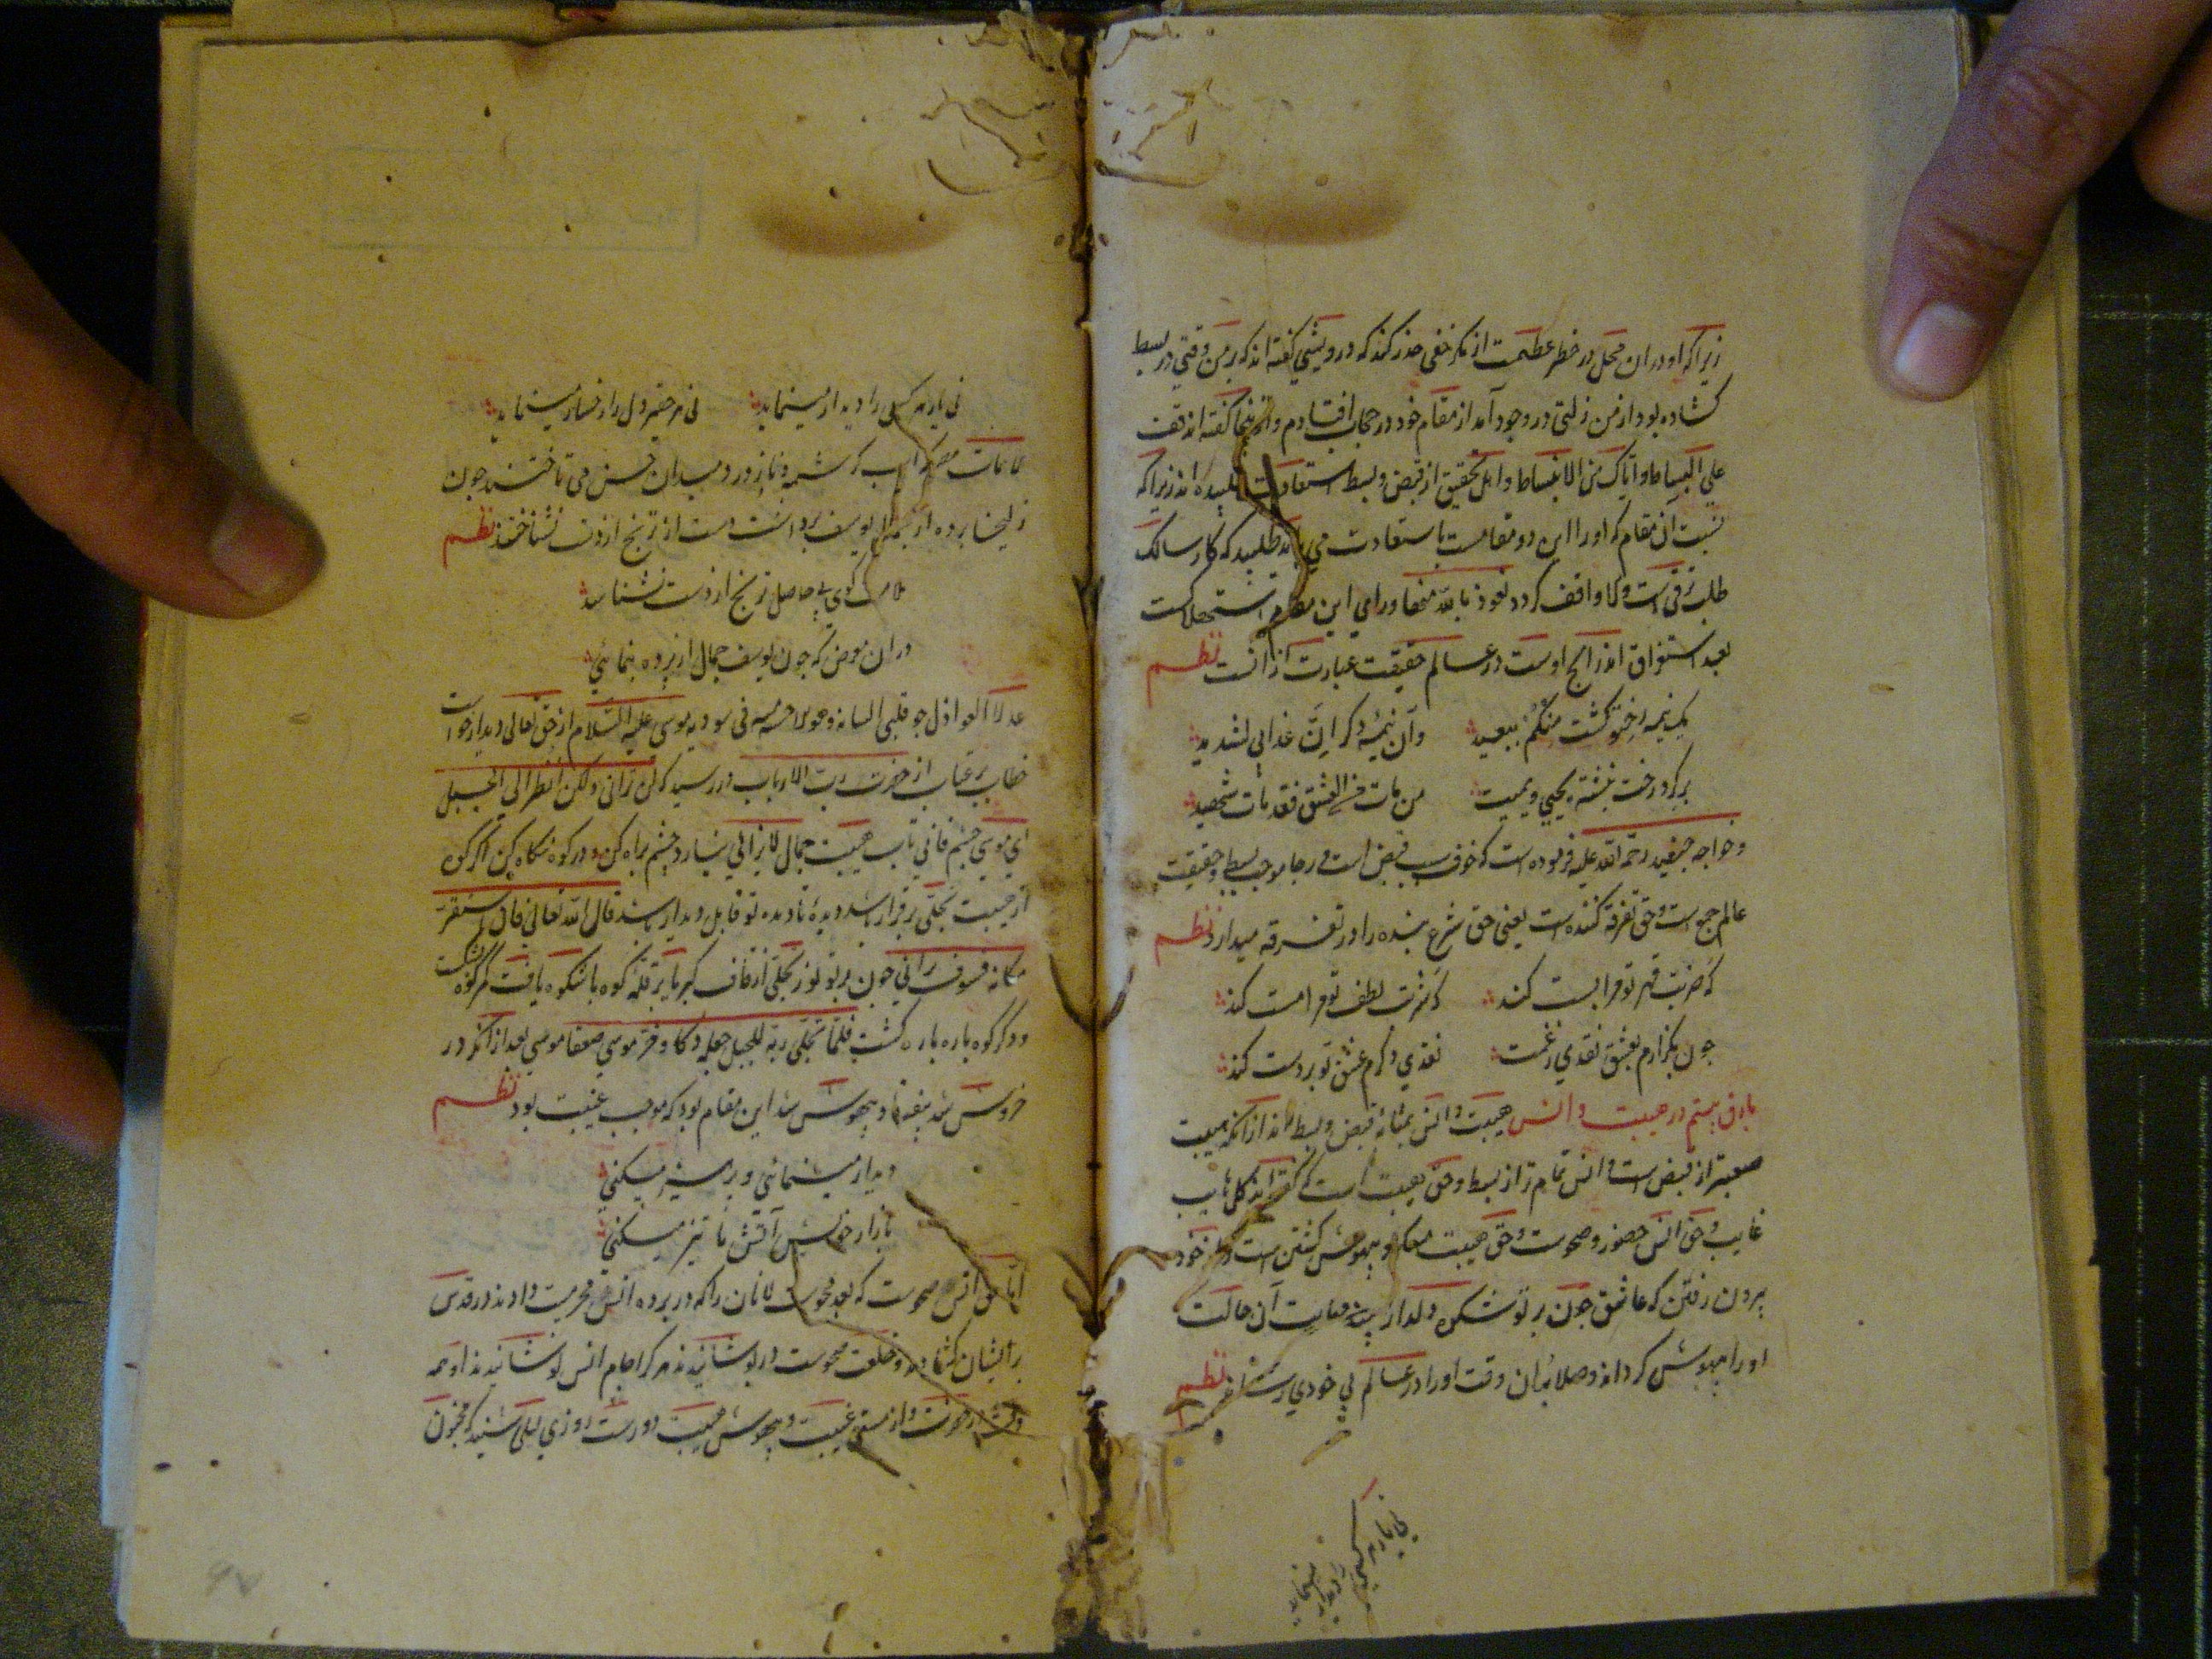 زیرا که او در ان محل در خطر عظیمست از مکر خفی حذر کند که درویشی گفته اند که بر من وقتی در بسط
کشاده بود از من زلتی در وجود آمد از مقام خود در حجاب افتادم و اینجا گفته اند قف
علی البساط و ایاک من الانبساط و اهل تحقیق از قبض و بسط استعاذت طلبیده اند زیرا که
نسبت آن مقام که او را این دو مقامست باستعاذت می باید طلبید که کار سالک
طلب ترقی است و کا واقف کردد نعوذ بالله منها ورای این مقام استهلاکست
بعد استغراق اندر انچ اوست در عالم حقیقت عبارت از انست نظم
یک نیمه رخت گشت منکم ببعید وآن نیمه دکر ان عذابی لشدید
بر کرد رخت نبشته یحیی و یمیت من مات فی العشق فقد مات شهید
و خواجه جنید رحمة الله علیه فرموده است که خوف سبب قبض است و رجا موجب بسط و حقیقت
عالم جمع است و حق تفرقه کننده است یعنی حق شرع بنده را در تفرقه میدارد نظم
که ضربت قهر تو مرا پست کند که شربت لطف تو مرا مست کند
چون بکذارم بعشق نقدی ز غمت نقدی دکرم عشق تو بر دست کند
بارق بیستم در هیبت و انس هیبت و انس بمثابه قبض و بسط اند از انکه هیبت
صعبتر از قبض است و انس تمام تر از بسط و حق هیبت است که گفته اند کل هایب
غایب و حق انس حضور و صحوست و حق هیبت محو و بیهوش کشتن است و از خود
بیرون رفتن که عاشق چون بر تو شکوه دلدار بیند مهابت آن حالت
او را بیهوش کرداند و صلابت ان وقت او را در عالم بی خودی نظم
نی یار بهر کسی را دیدار مینماید
نی یار بهر کسی را دیدار مینماید نی هر حقیر دل را رخسار مینماید
لامات مصر که اسب کرشمه و ناز در میدان حسن می تاختند چون
زلیخا پرده از جمال یوسف برداشت دست از ترنج از ذوق نشناختند نظم
ملامت کوی بی حاصل ترنج از دست نشناسد
دران معرض که چون یوسف جمال از پرده بنمائی
موسی علیه السلام از حق تعالی دیدار خواست
خطاب بر عتاب از حضرت رب الارباب در رسید که لن ترانی ولکن انظر الی الجبل
ای موسی چشم فانی تاب هیبت جمال لایزالی نیارد چشم براه کن و در کوه نکاه کن اکر کوه
از هیبت تجلی بر قرار باشد دیده نادیده تو قابل دیدار باشد قال الله تعالی فان استقر
مکانه فسوف ترانی چون پرتو نور تجلی از قاف کبریا بر قله کوه باشکوه یافت کمر کوه شکست
و دکر کوه پاره پاره کشت فلما تجلی ربه للجبل جعله دکا و خر موسی صعقا موسی بعد از انکه در
خروش شد بیفتاد و بیهوش شد این مقام بود که موجب غیبت بود نظم
دیدار مینمائی و پرهیز میکنی
بازار خویش و آتش ما تیز میکنی
اما حق انس صحوست که بعد محوست لامان را که در پرده انس محرمیت دادند در قدس
بر ایشان کشادند و خلعت صحوست در پوشانیدند هر کرا جام انس نوشانیدند او همه
وقت در صحوست و از مستی غیبت و بیهوش هیبت دورست روزی لیلی شنید که مجنون